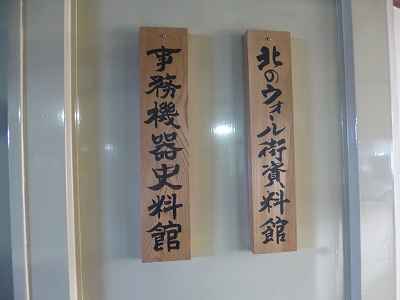 北のウォール街資料館
事務機器史料館